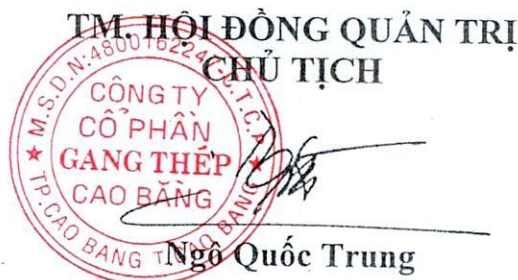 TM. HỘI ĐỒNG QUẢN TRỊ
CHỦ TỊCH
M.S.D.N:4800162247-C.T.C.P
CÔNG TY
CỔ PHẦN
GANG THÉP
CAO BẰNG
TP.CAO BANG T. CAO BANG
Ngô Quốc Trung